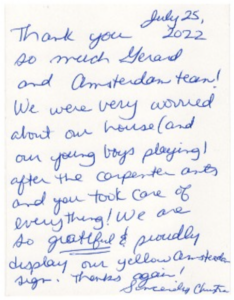 July 25,
2022
Thank you
so much Gerard
and Amsterdam team!
We were very worried
about our house (and
our young boys playing)
after the carpenter ants
and you took care of
everything! We are
so grateful & proudly
display our yellow Amsterdam
sign. Thanks again!
Sincerely, Christin